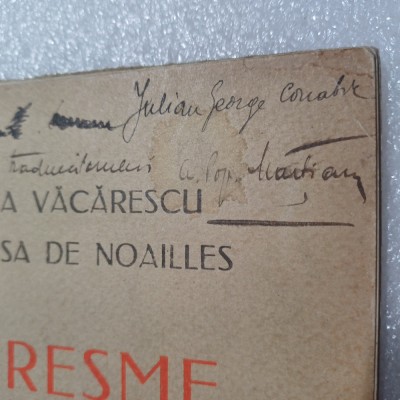 Julian George
traducătorului A. Pop. Marțian
A VĂCĂRESCU
SA DE NOAILLES
RESME